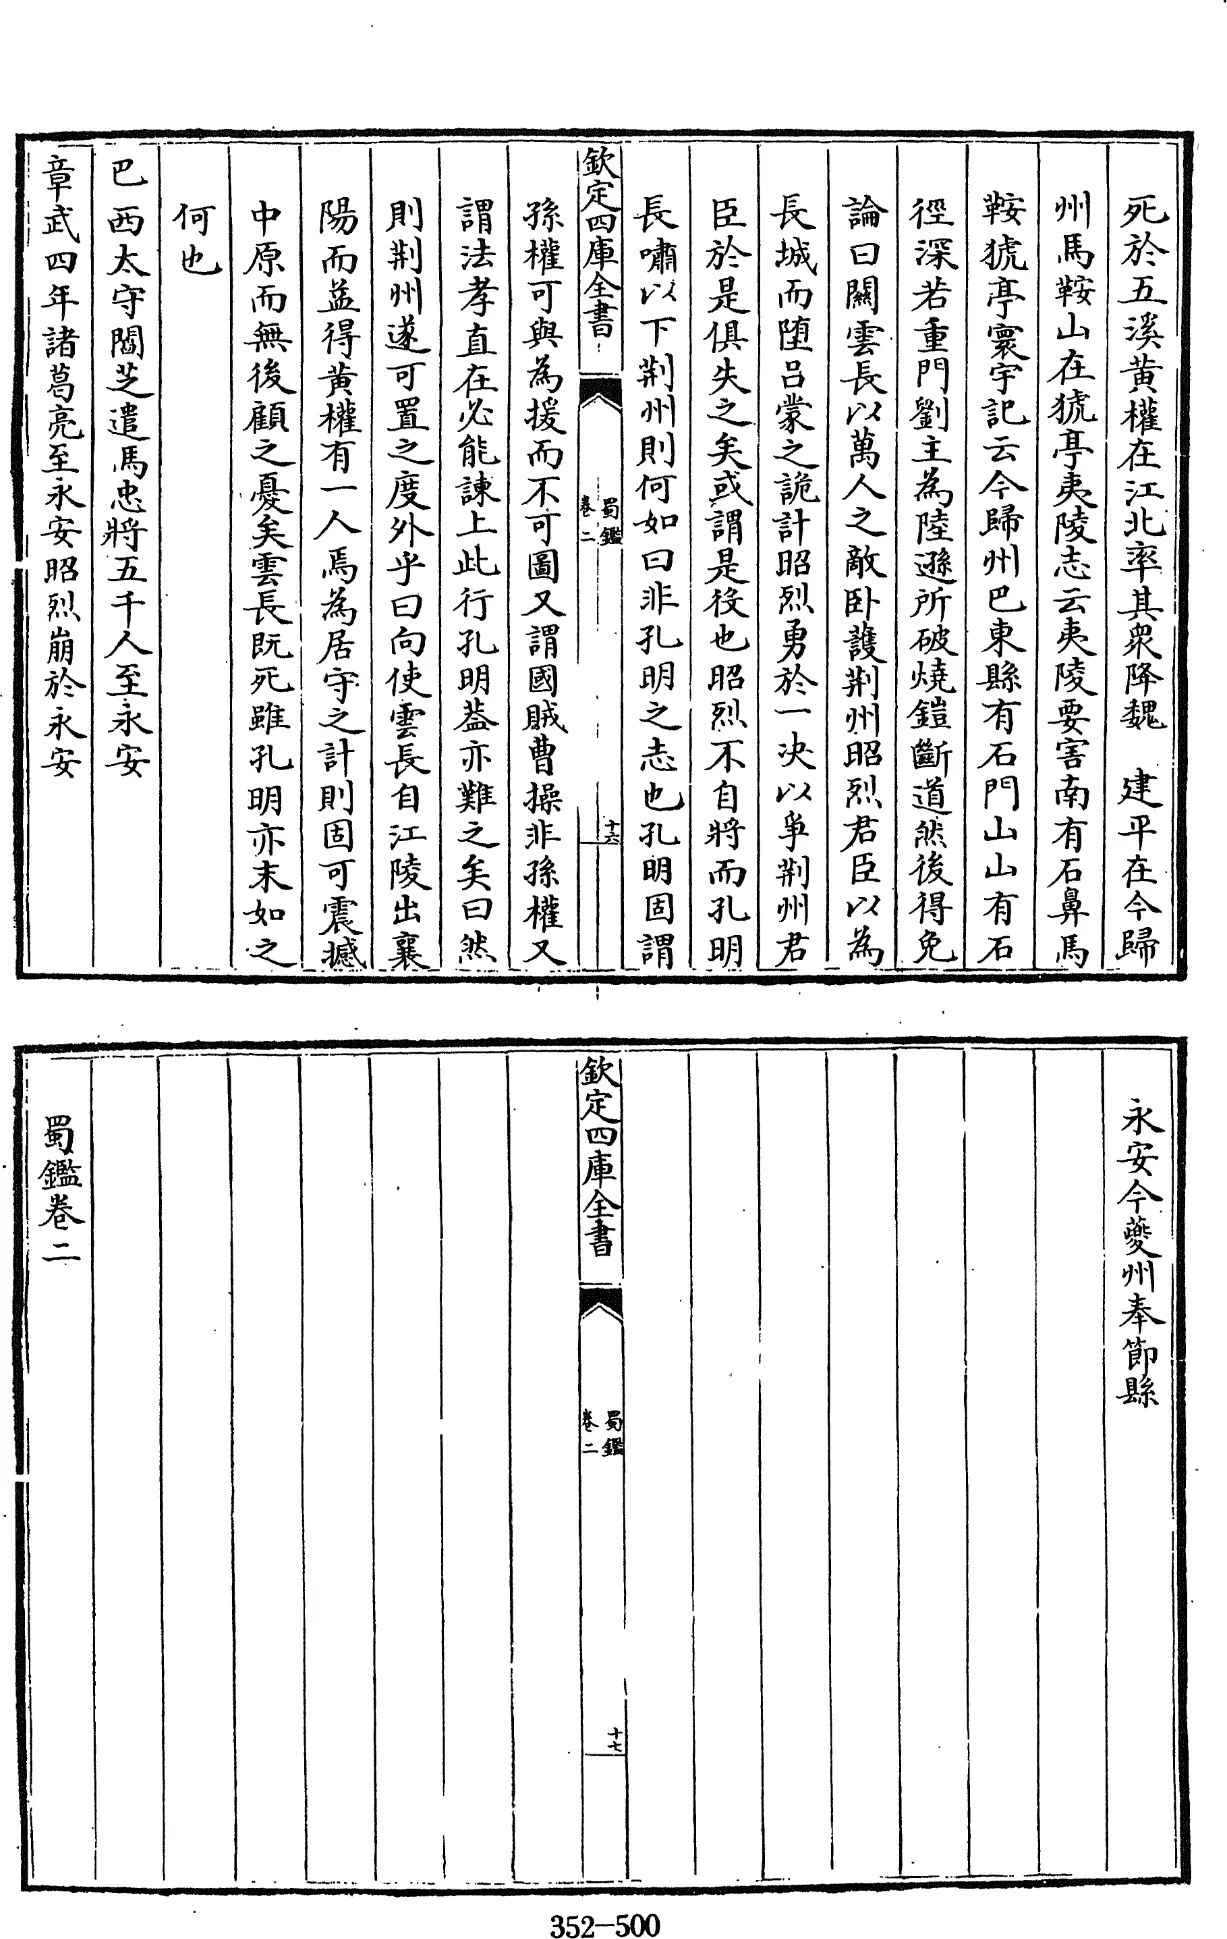 死於五溪黄權在江北率其衆降魏　建平在今歸
州馬鞍山在猇亭夷陵志云夷陵要害南有石鼻馬
鞍猇亭寰宇記云今歸州巴東縣有石門山山有石
徑深若重門劉主為陸遜所破燒鎧斷道然後得免
論曰關雲長以萬人之敵卧護荆州昭烈君臣以為
長城而堕吕蒙之詭計昭烈勇於一决以爭荆州君
臣於是俱失之矣或謂是役也昭烈不自將而孔明
長嘯以下荆州則何如曰非孔明之志也孔明固謂
欽定四庫全書
蜀鑑
卷二
十六
孫權可與為援而不可圖又謂國賊曹操非孫權又
謂法孝直在必能諫上此行孔明葢亦難之矣曰然
則荆州遂可置之度外乎曰向使雲長自江陵出襄
陽而益得黄權有一人焉為居守之計則固可震撼
中原而無後顧之憂矣雲長既死雖孔明亦末如之
何也
巴西太守閻芝遣馬忠將五千人至永安
章武四年諸葛亮至永安昭烈崩於永安
永安今夔州奉節縣
欽定四庫全書
蜀鑑
卷二
十七
蜀鑑卷二
352-500